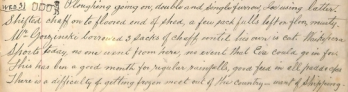 WED 31 Ploughing going on, double and single furrow, Leo using latter.
Shifted chaff on to floored end of shed, a few sacks full left on floor, musty.
Mr. Gorzenski borrowed 3 sacks of chaff until his own is cut.
Sports today, no one went from here, no event that Eva could go in for.
This has been a good month for regular rainfalls, good feed in all paddocks
There is a difficulty of getting frozen meat out of the country - want of shipping.